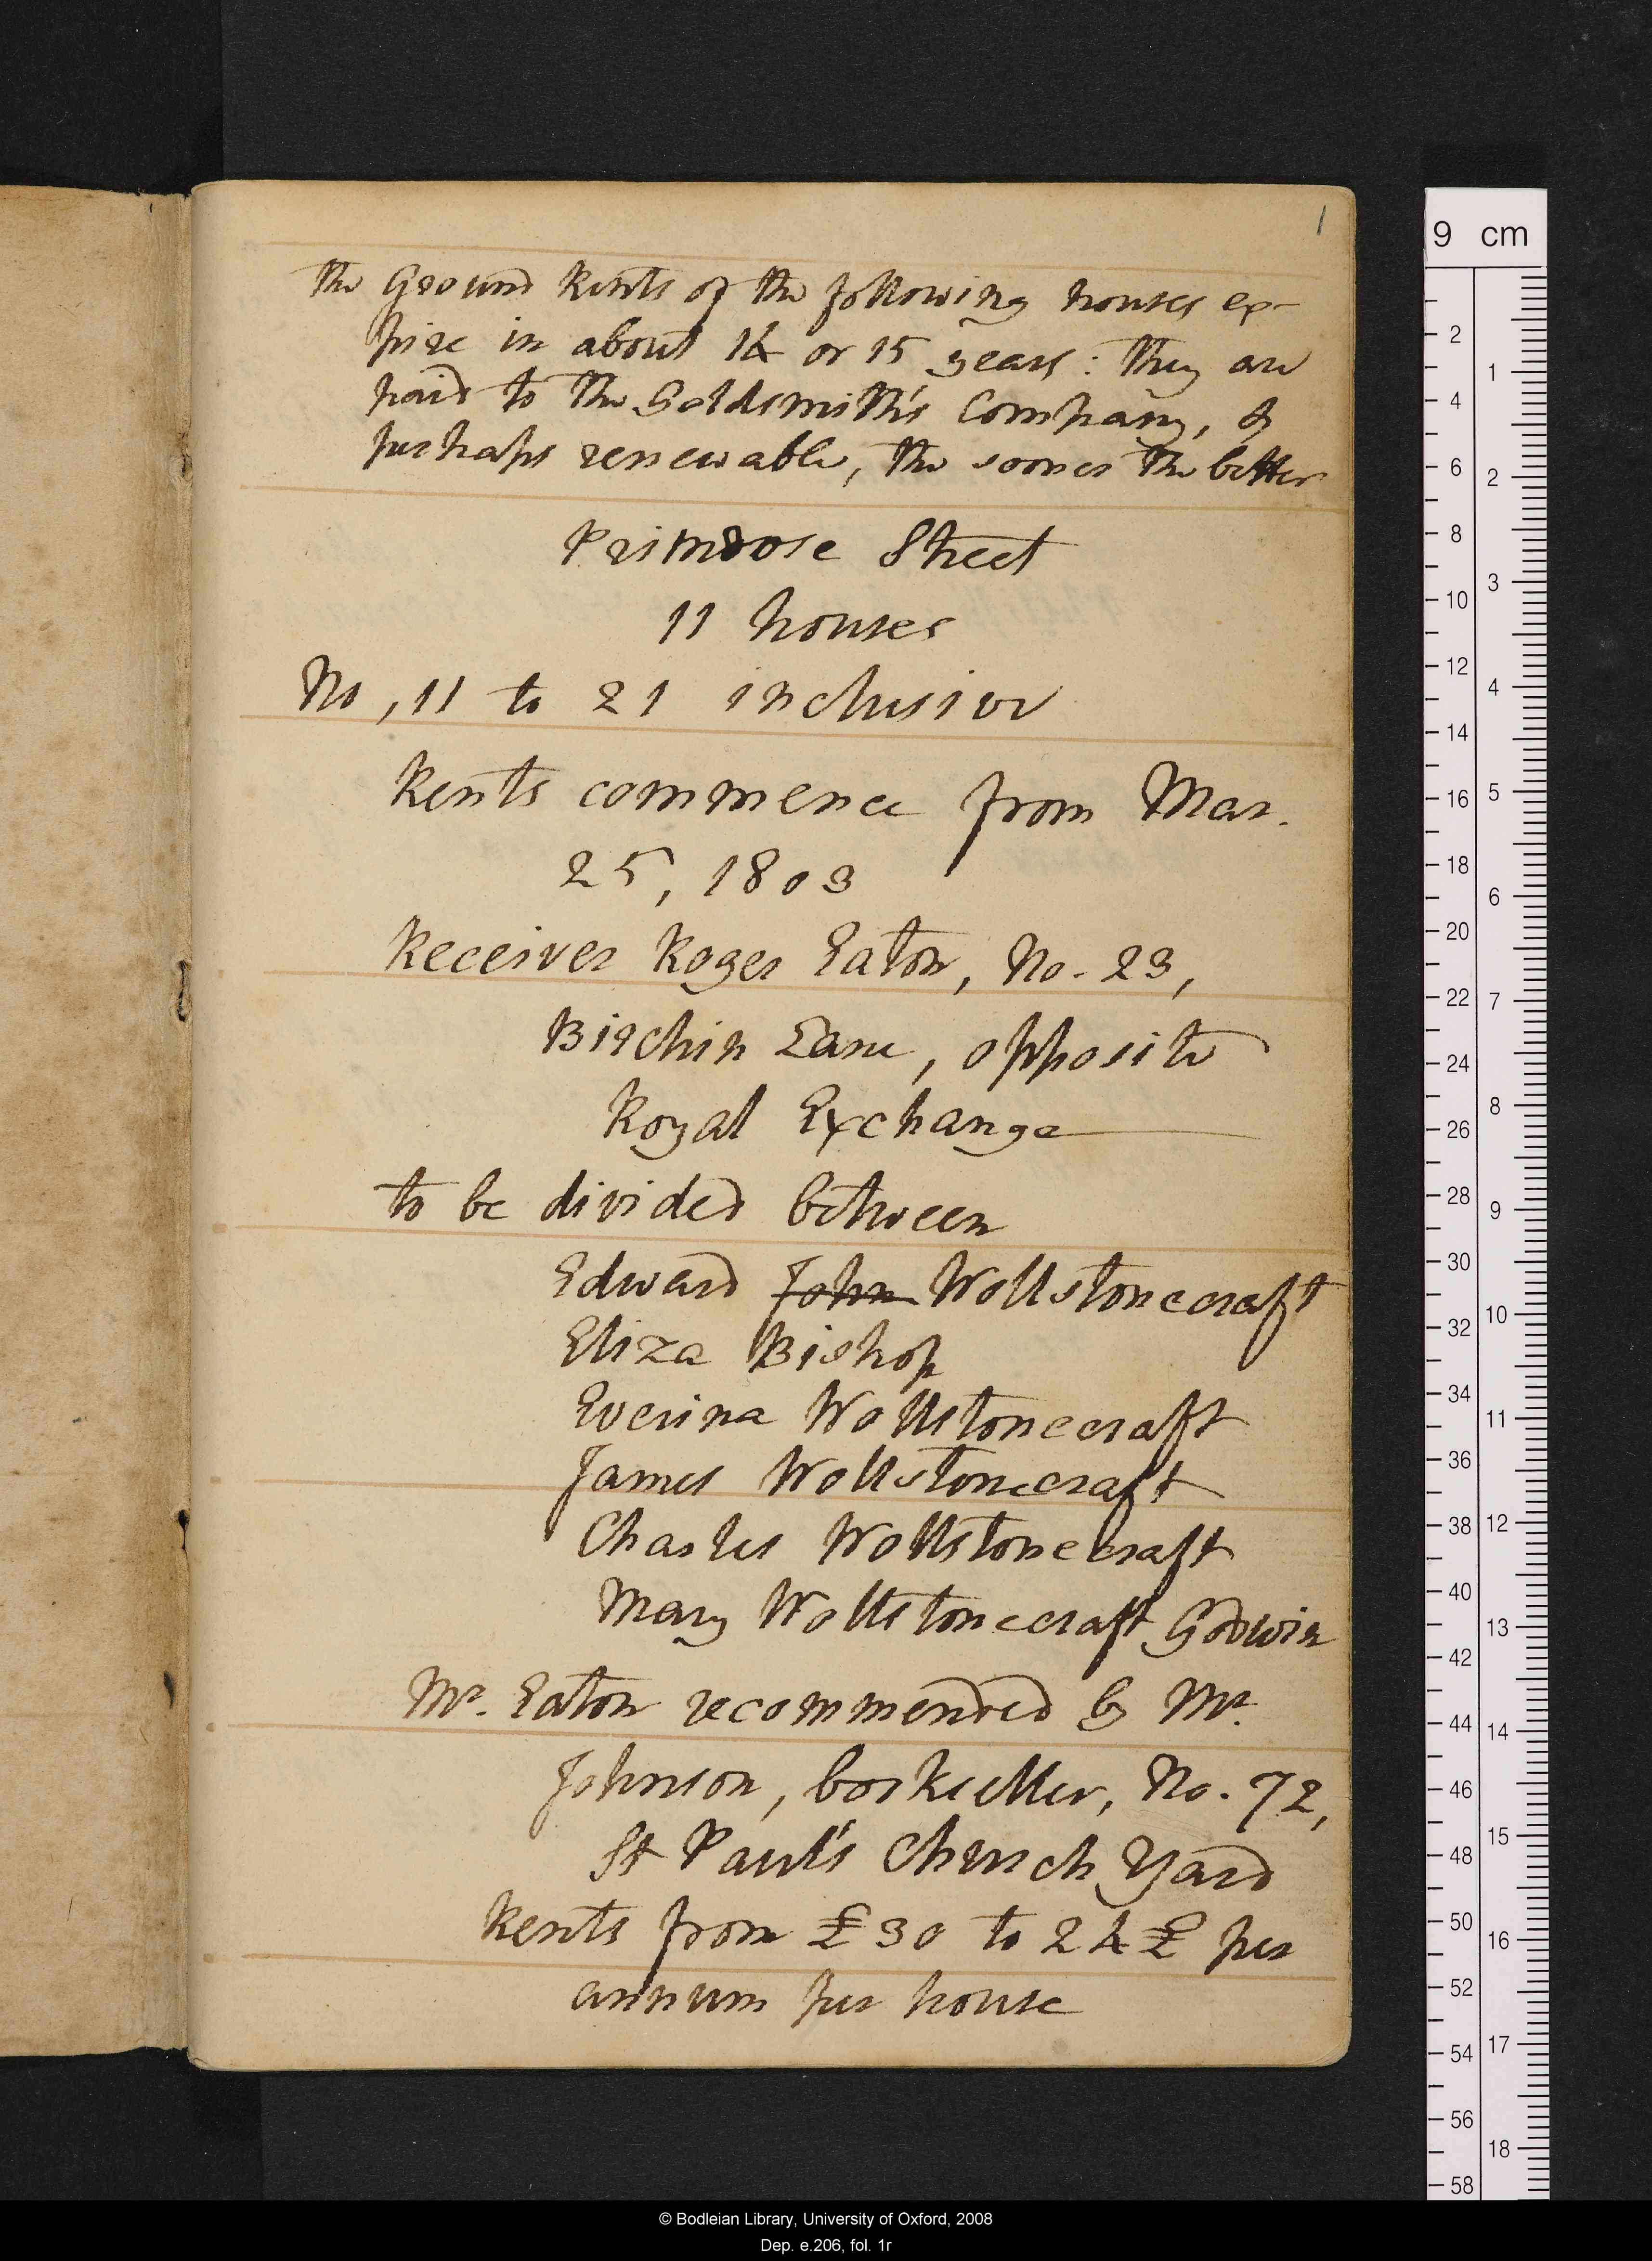 1
The Ground Rents of the following houses ex-
pire in about 14 or 15 years: They are
paid to the Goldsmith's Company, &
perhaps renewable, the sooner the better
Primrose Street
11 houses
No, 11 to 21 inclusive
Rents commence from Mar.
25, 1803
Receiver Roger Eaton, No. 23,
Birchin Lane, opposite
Royal Exchange
to be divided between
Edward John Wollstonecraft
Eliza Bishop
Everina Wollstonecraft
James Wollstonecraft
Charles Wollstonecraft
Mary Wollstonecraft Godwin
Mr. Eaton recommended by Mr.
Johnson, bookseller, No. 72,
St Paul's Church Yard
Rents from £30 to 24£ per
annum per house
9 cm
2
4
6
8
10
12
14
16
18
20
22
24
26
28
30
32
34
36
38
40
42
44
46
48
50
52
54
56
58
1
2
3
4
5
6
7
8
9
10
11
12
13
14
15
16
17
18
© Bodleian Library, University of Oxford, 2008
Dep. e.206, fol. 1r